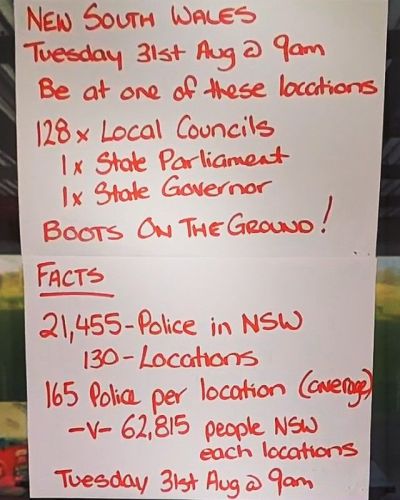 NEW SOUTH WALES
Tuesday 31st Aug @ 9am
Be at one of these locations
128x Local Councils
1x State Parliament
1x State Governor
BOOTS ON THE GROUND!
FACTS
21,455-Police in NSW
130-Locations
165 Police per location (average)
-V- 62,815 people NSW
each locations
Tuesday 31st Aug @ 9am